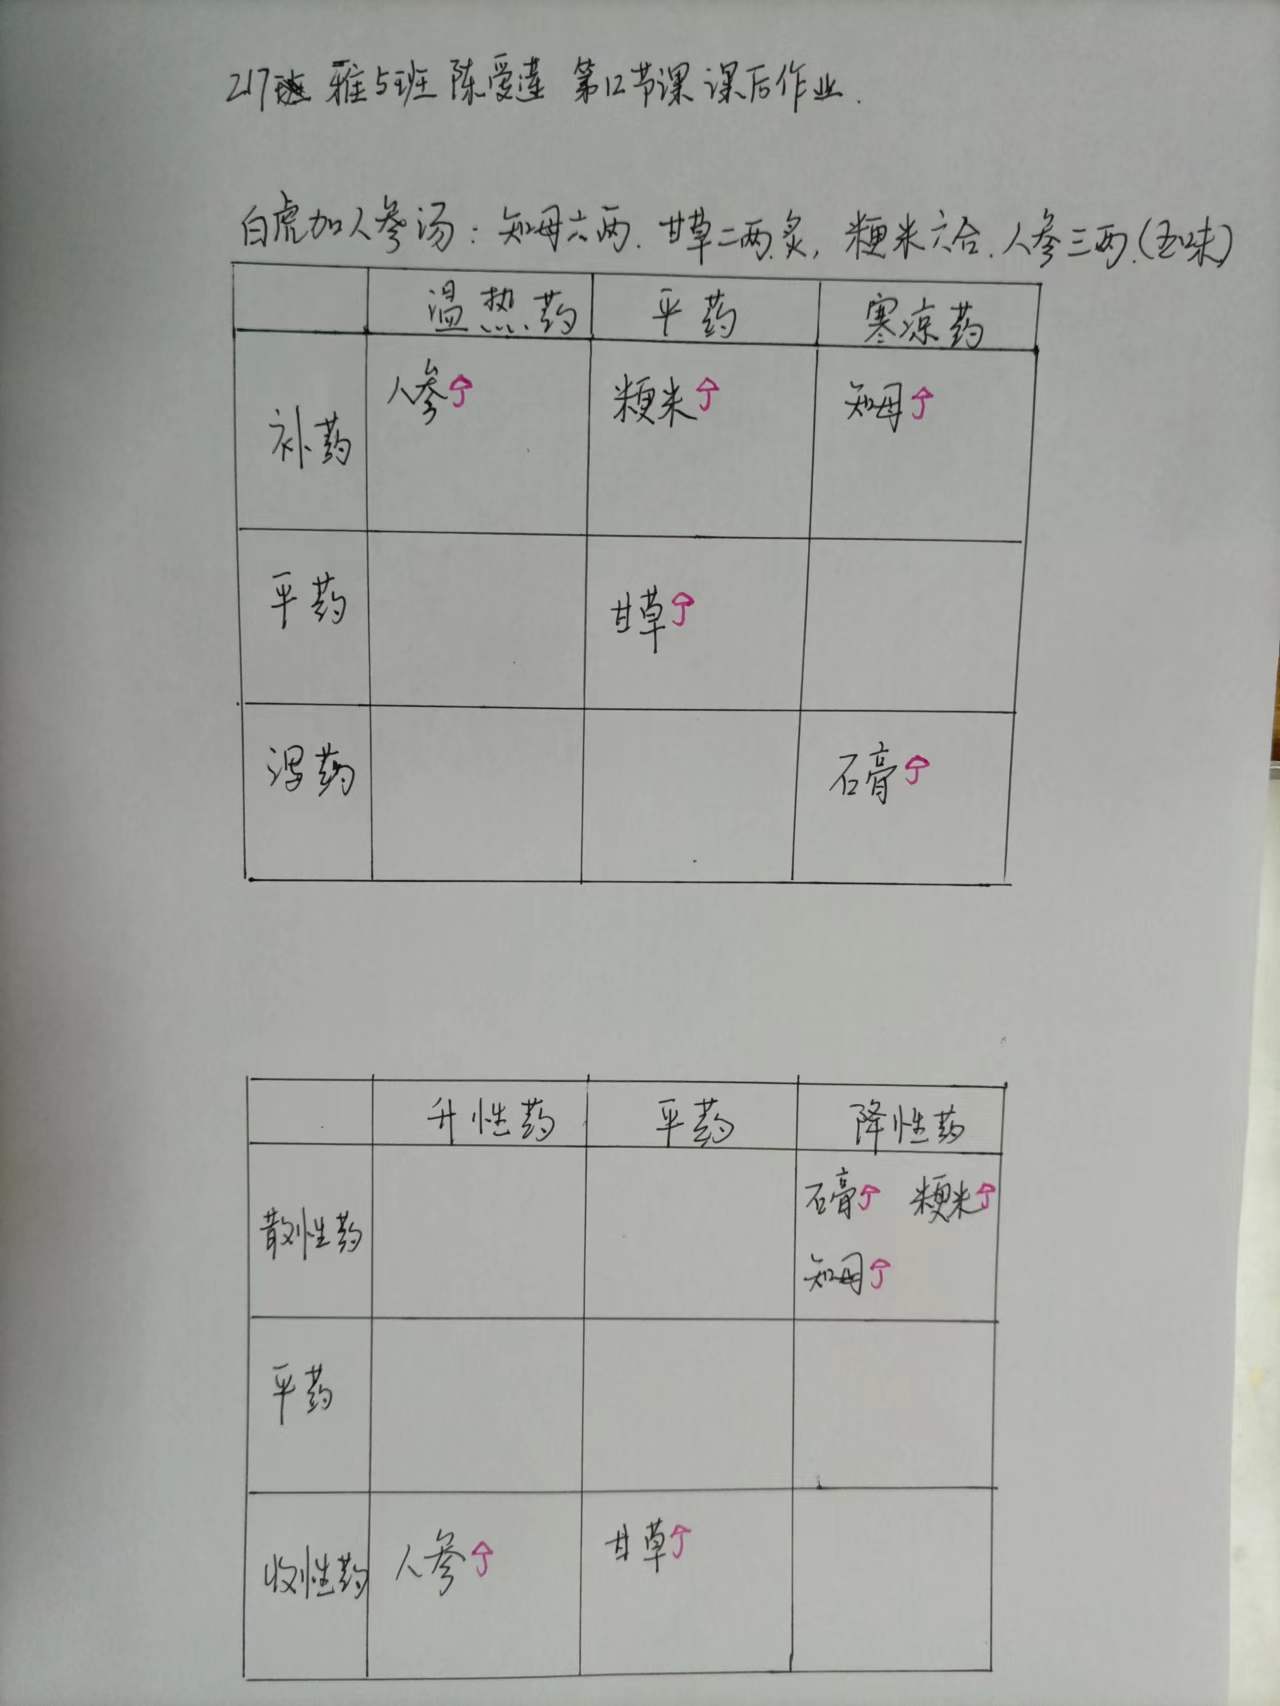 217班 雅5班 陈受莲 第12节课 课后作业.
白虎加人参汤：知母六两. 甘草二两.炙, 粳米六合. 人参三两.(五味)
温热药 平药 寒凉药
补药 人参 粳米 知母
平药 甘草
泻药 石膏
升性药 平药 降性药
散性药 石膏 粳米
知母
平药
收性药 人参 甘草